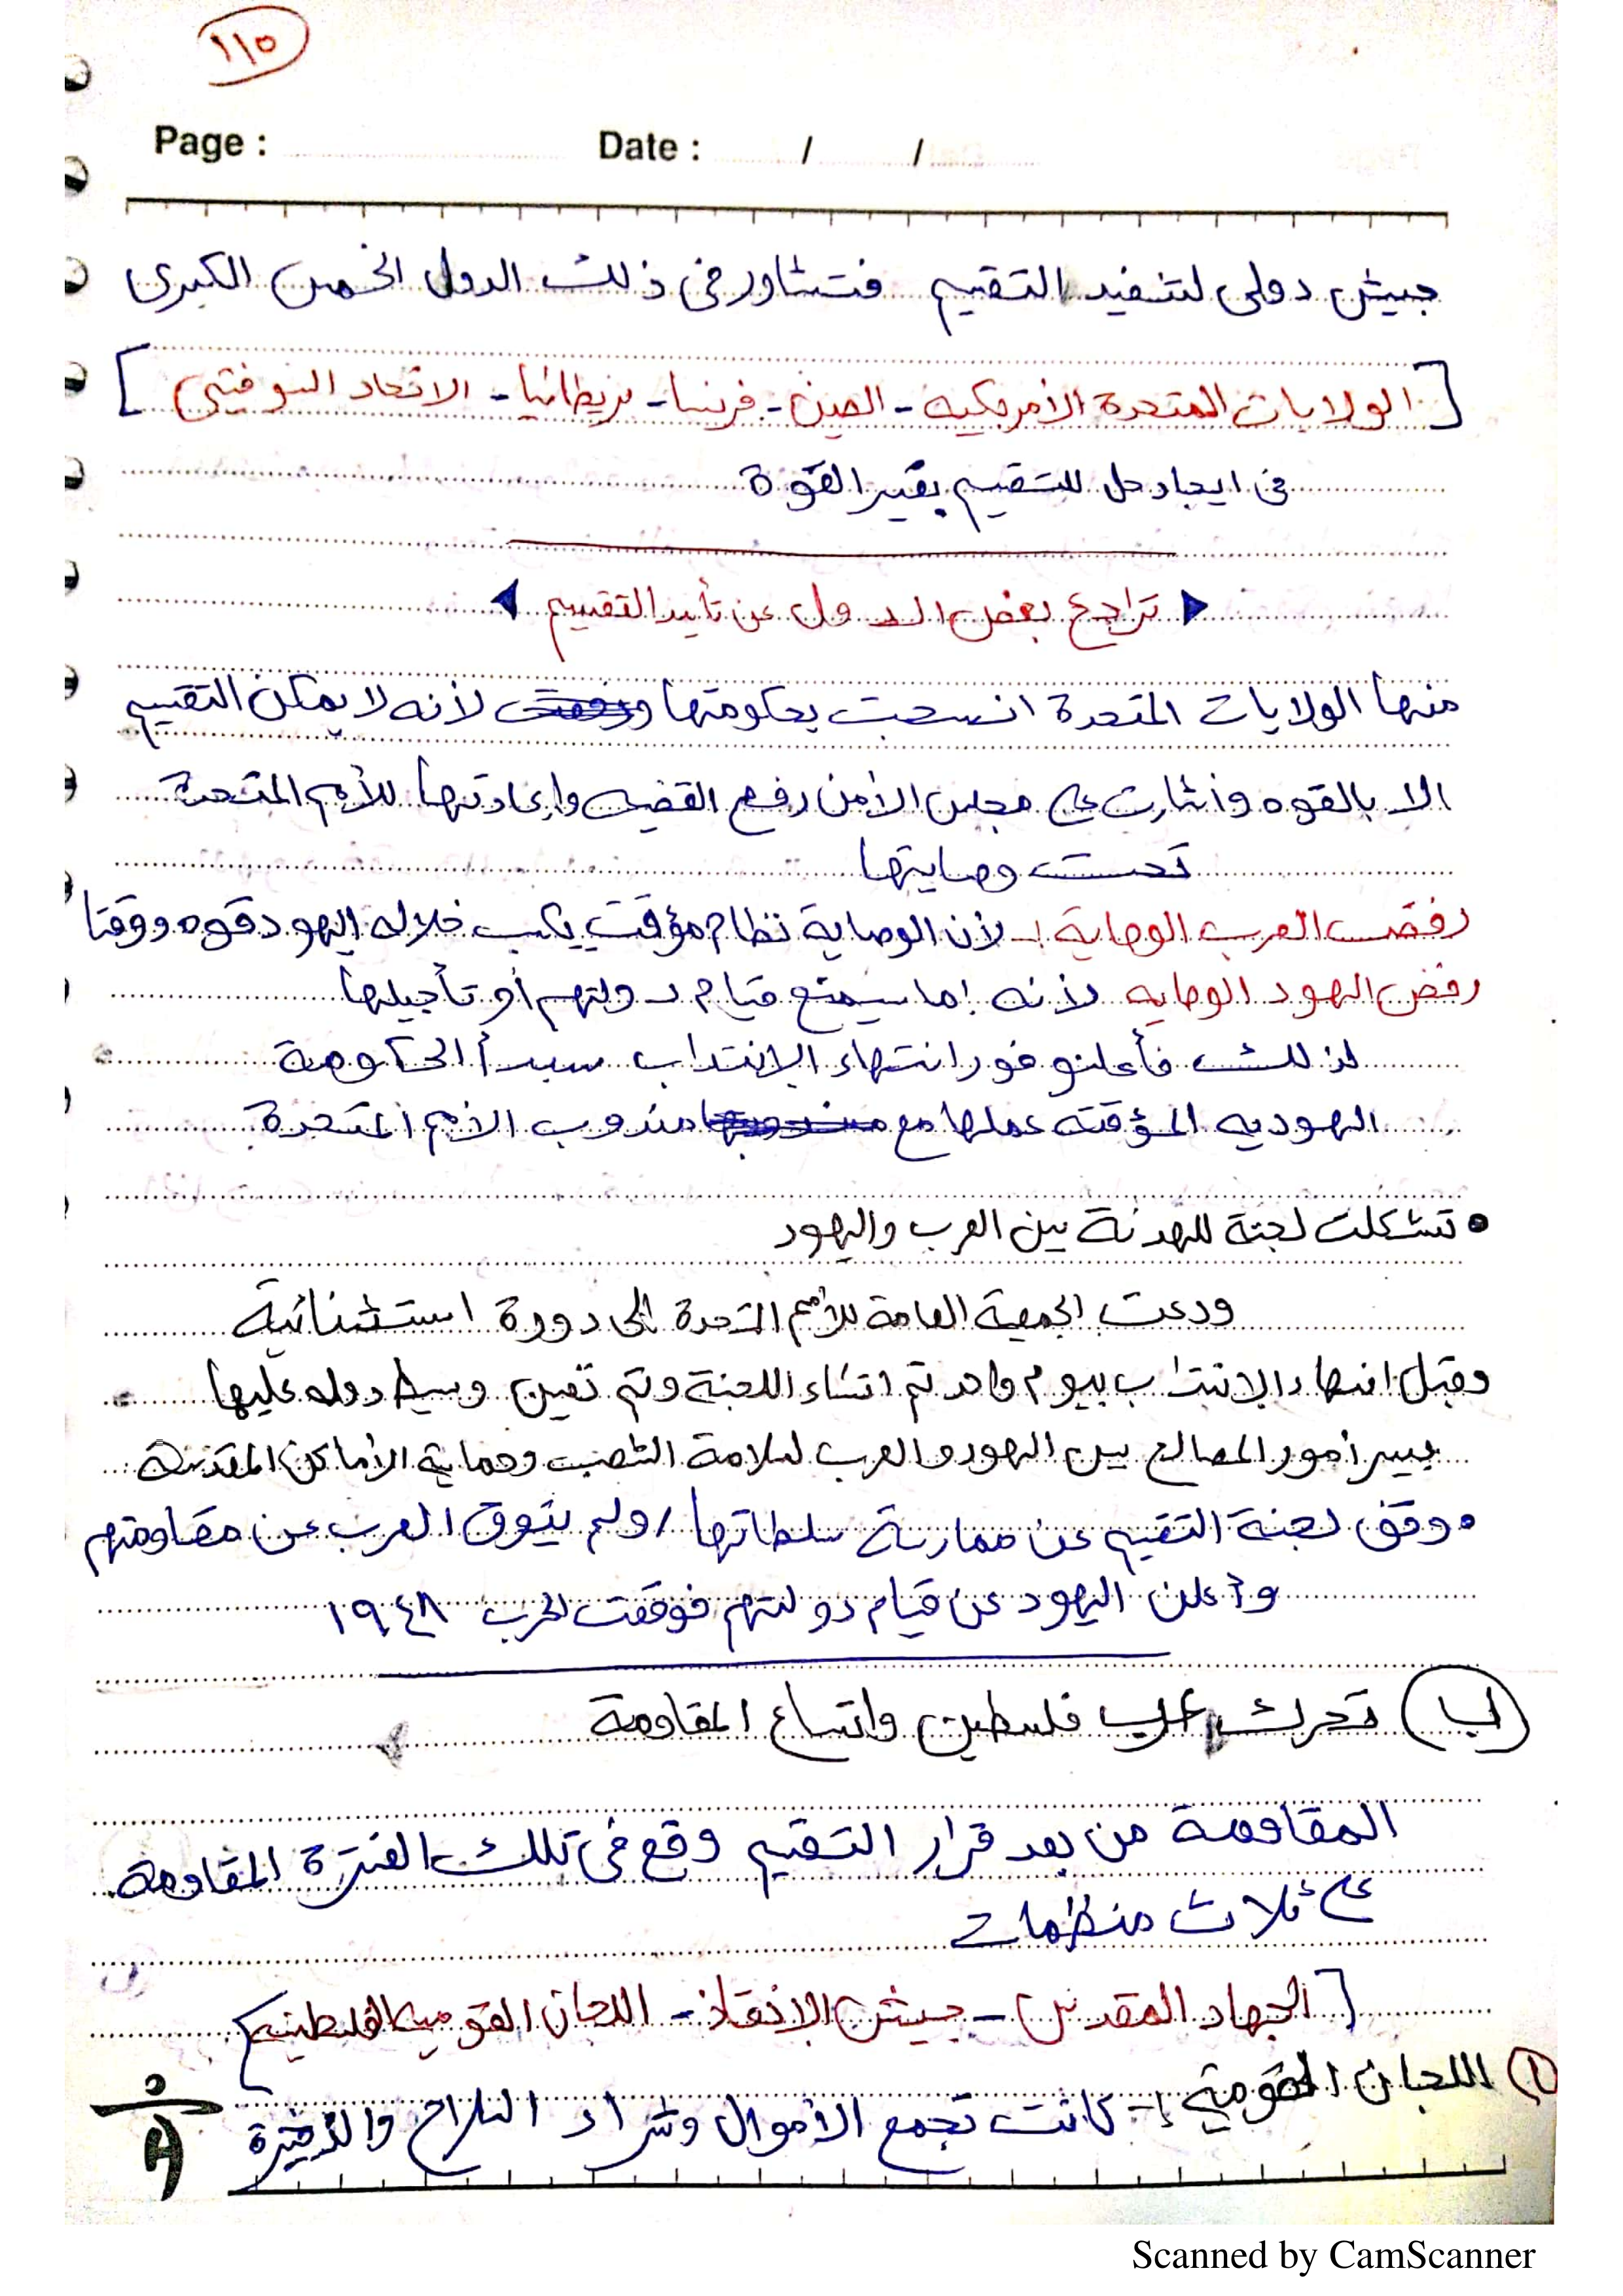 ١١٥
Page : Date : / /
جيش دولى لتنفيذ التقسيم فتشاور فى ذلك الدول الخمس الكبرى
[ الولايات المتحدة الأمريكيه - الصين - فرنسا - بريطانيا - الاتحاد السوفيتى ]
فى ايجاد حل للتقسيم بغير القوة
تراجع بعض الدول عن تأيد التقسيم
منها الولايات المتحدة انسحبت بحكومتها لأنه لا يمكن التقسيم
الا بالقوه وأشارت على مجلس الأمن رفع القضيه وإعادتها للأمم المتحدة
تحت وصايتها
رفض العرب الوصاية :- لأن الوصاية نظام مؤقت يكسب خلاله اليهود قوه ووقتا
رفض اليهود الوصايه لأنه إما سيمنع قيام دولتهم أو تأجيلها
لذلك فأعلنو فور انتهاء الانتداب سيبدأ الحكومة
اليهوديه المؤقته عملها مع مندوب الأمم المتحدة
• تشكلت لجنة للهدنة بين العرب واليهود
ودعت الجمعية العامة للأمم المتحدة إلى دورة استثنائية
وقبل انتهاء الانتداب بيوم واحد تم انشاء اللجنة وتم تعين وسيط دوله عليها
ييسر أمور المصالح بين اليهود والعرب لسلامة الشعب وحماية الأماكن المقدسة
• وقف لجنة التقسيم عن ممارسة سلطاتها / ولم يتوق العرب عن مقاومتهم
وأعلن اليهود عن قيام دولتهم فوقعت لحرب ١٩٤٨
(ب) تحرك عرب فلسطين واتساع المقاومة
المقاومة من بعد قرار التقسيم وقع فى تلك الفترة المقاومة
على ثلاث منظمات
[ الجهاد المقدس - جيش الإنقاذ - اللجان القوميه الفلسطينيه ]
(١) اللجان القومية :- كانت تجمع الأموال وشراء السلاح والذخيرة
Scanned by CamScanner